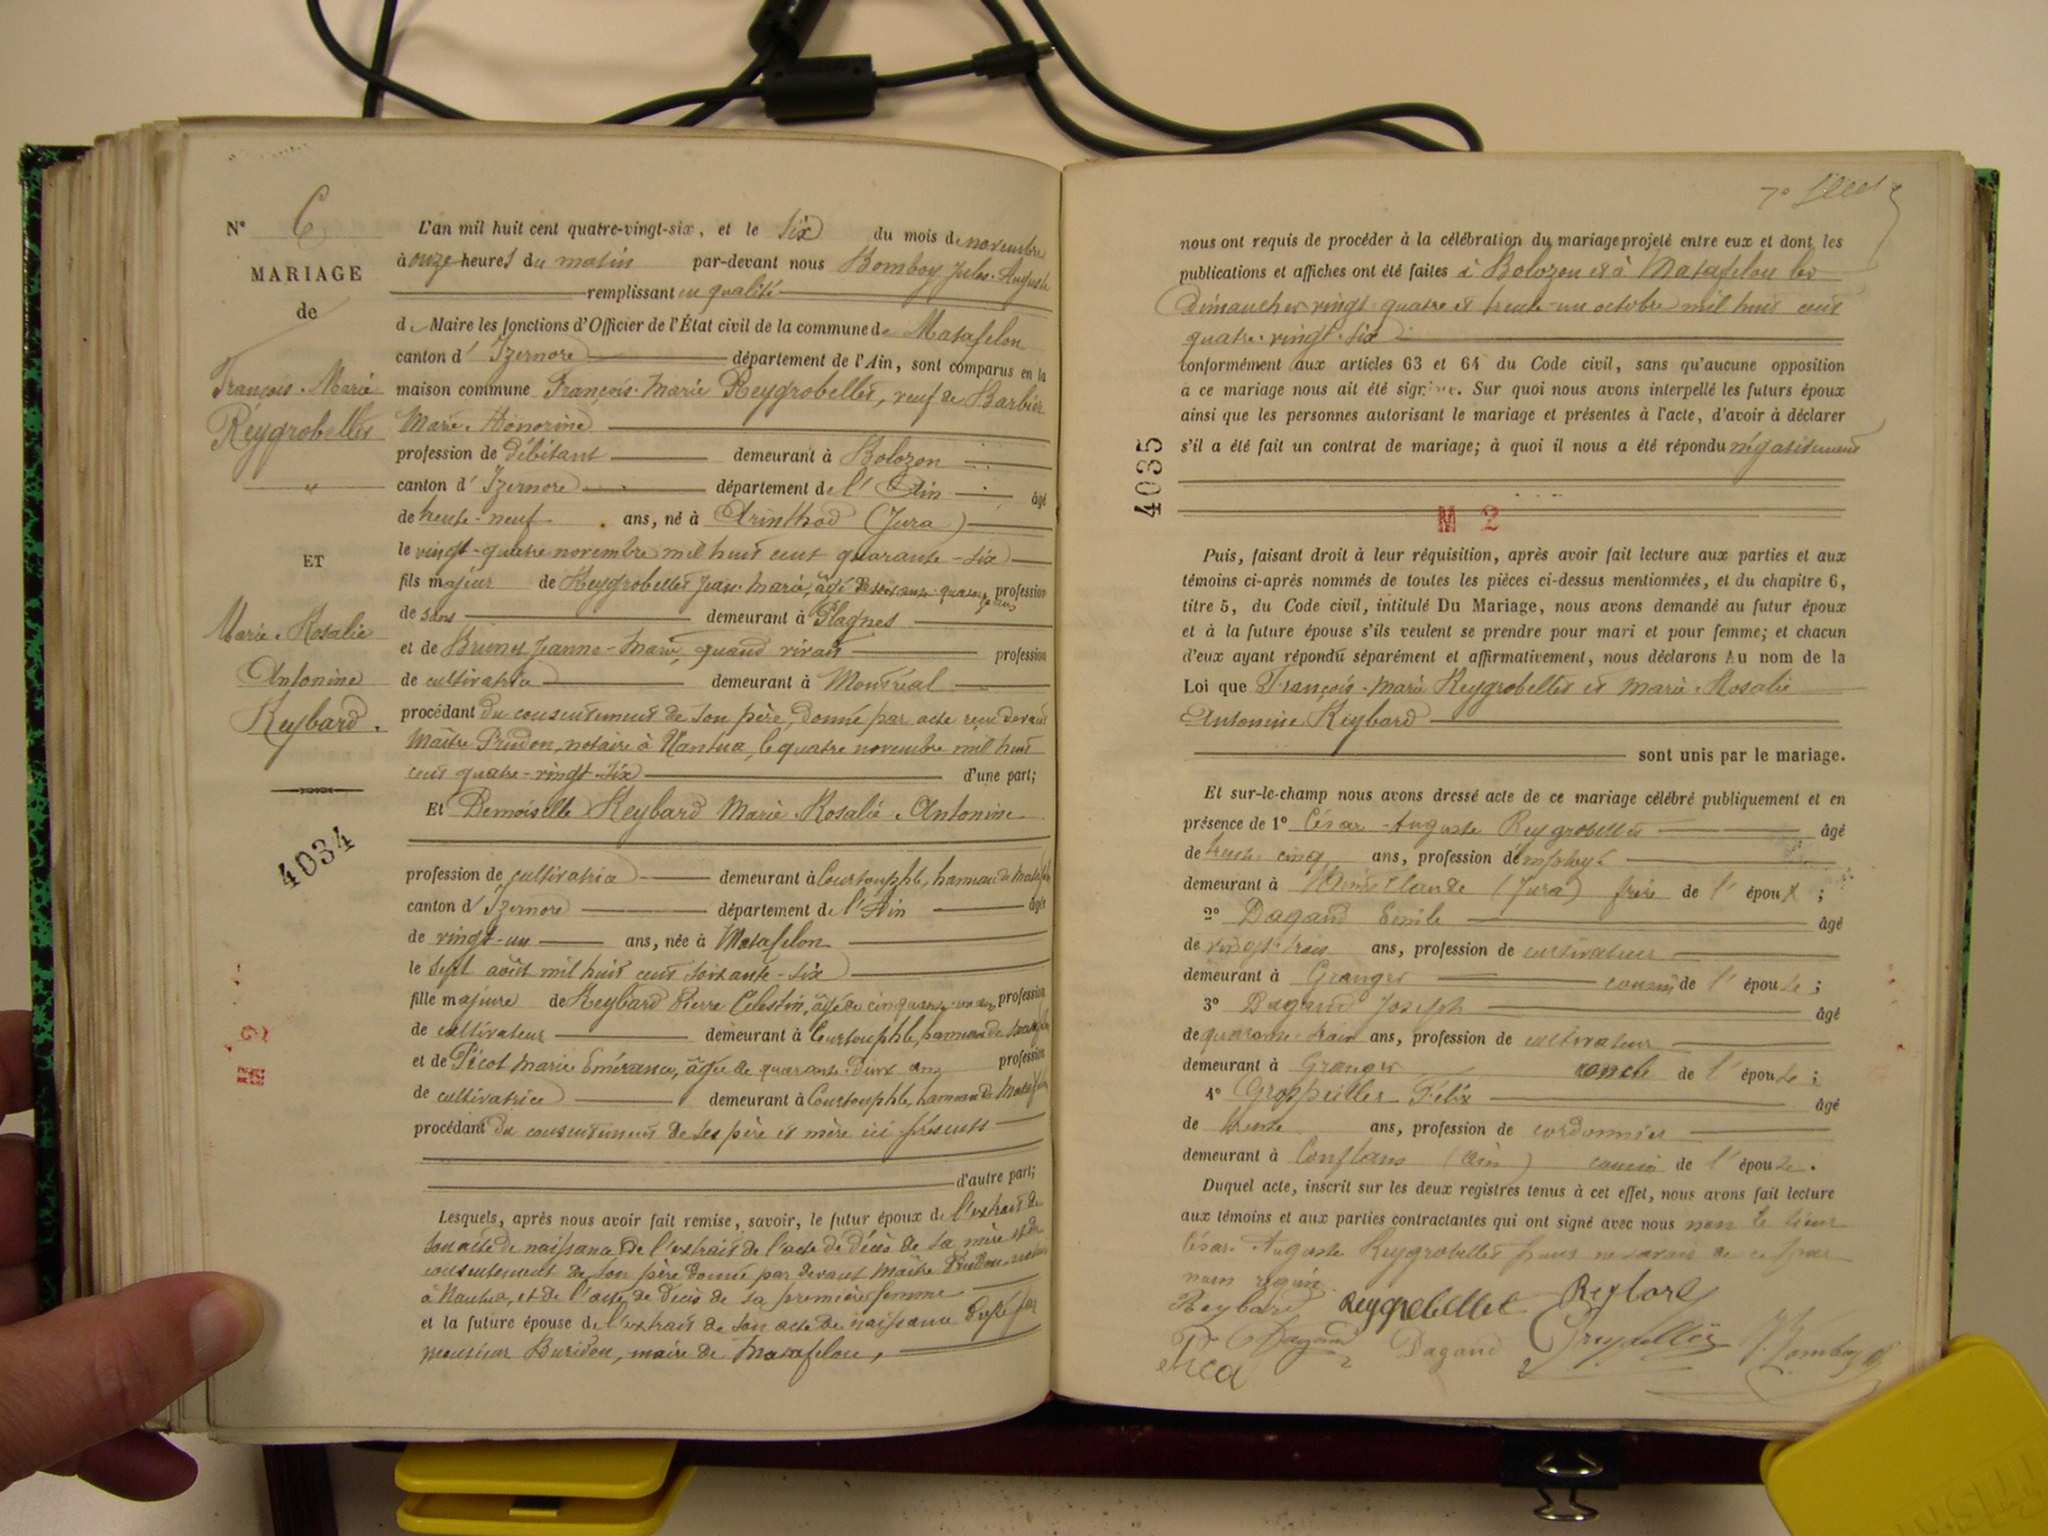 N° 6
MARIAGE
de
François-Marie
Reygrobellet
"
ET
Marie-Rosalie
Antonine
Reybard.
4034
M 2
L'an mil huit cent quatre-vingt-six, et le six du mois de novembre
à onze heures du matin par-devant nous Bomboy Jules-Auguste
remplissant en qualité
de Maire les fonctions d'Officier de l'État civil de la commune de Matafelon
canton d'Izernore département de l'Ain, sont comparus en la
maison commune François-Marie Reygrobellet, veuf de Barbier
Marie-Honorine
profession de débitant demeurant à Bolozon
canton d'Izernore département de l'Ain âgé
de trente-neuf ans, né à Arinthod (Jura)
le vingt-quatre novembre mil huit cent quarante-six
fils majeur de Reygrobellet Jean-Marie, âgé de soixante-quatorze ans profession
de sans demeurant à Plagnes
et de Brunet Jeanne-Marie, quand vivait profession
de cultivatrice demeurant à Montréal
procédant du consentement de son père, donné par acte reçu devant
Maître Prudon, notaire à Nantua, le quatre novembre mil huit
cent quatre-vingt-six d'une part;
Et Demoiselle Reybard Marie-Rosalie-Antonine
profession de cultivatrice demeurant à Courtouphle, hameau de Matafelon
canton d'Izernore département de l'Ain âgée
de vingt-un ans, née à Matafelon
le sept août mil huit cent soixante-six
fille majeure de Reybard Pierre Célestin, âgé de cinquante-un ans profession
de cultivateur demeurant à Courtouphle, hameau de Matafelon
et de Picot Marie Emérance, âgée de quarante-deux ans profession
de cultivatrice demeurant à Courtouphle, hameau de Matafelon
procédant du consentement de ses père et mère ici présents
d'autre part;
Lesquels, après nous avoir fait remise, savoir, le futur époux de l'extrait de
son acte de naissance de l'extrait de l'acte de décès de sa mère et du
consentement de son père donné par devant Maître Prudon notaire
à Nantua, et de l'acte de décès de sa première femme
et la future épouse de l'extrait de son acte de naissance délivré par
monsieur Buridon, maire de Matafelon,
7°
nous ont requis de procéder à la célébration du mariage projeté entre eux et dont les
publications et affiches ont été faites à Bolozon et à Matafelon les
dimanches vingt-quatre et trente-un octobre mil huit cent
quatre-vingt-six
conformément aux articles 63 et 64 du Code civil, sans qu'aucune opposition
à ce mariage nous ait été signifiée. Sur quoi nous avons interpellé les futurs époux
ainsi que les personnes autorisant le mariage et présentes à l'acte, d'avoir à déclarer
s'il a été fait un contrat de mariage; à quoi il nous a été répondu négativement
4035
M 2
Puis, faisant droit à leur réquisition, après avoir fait lecture aux parties et aux
témoins ci-après nommés de toutes les pièces ci-dessus mentionnées, et du chapitre 6,
titre 5, du Code civil, intitulé Du Mariage, nous avons demandé au futur époux
et à la future épouse s'ils veulent se prendre pour mari et pour femme; et chacun
d'eux ayant répondu séparément et affirmativement, nous déclarons Au nom de la
Loi que François-Marie Reygrobellet et Marie-Rosalie
Antonine Reybard
sont unis par le mariage.
Et sur-le-champ nous avons dressé acte de ce mariage célébré publiquement et en
présence de 1° César-Auguste Reygrobellet âgé
de trente-cinq ans, profession d'employé
demeurant à Claude (Jura) frère de l'époux;
2° Dagand Emile âgé
de vingt-trois ans, profession de cultivateur
demeurant à Granges cousin de l'épouse;
3° Dagand Joseph âgé
de quarante-trois ans, profession de cultivateur
demeurant à Granges oncle de l'épouse;
4° Groppellier Félix âgé
de trente ans, profession de cordonnier
demeurant à Conflans (Ain) cousin de l'épouse.
Duquel acte, inscrit sur les deux registres tenus à cet effet, nous avons fait lecture
aux témoins et aux parties contractantes qui ont signé avec nous non le sieur
César-Auguste Reygrobellet pour ne savoir de ce par
nous requis
Reybard Reygrobellet Reybard
Dagand Dagand Bomboy